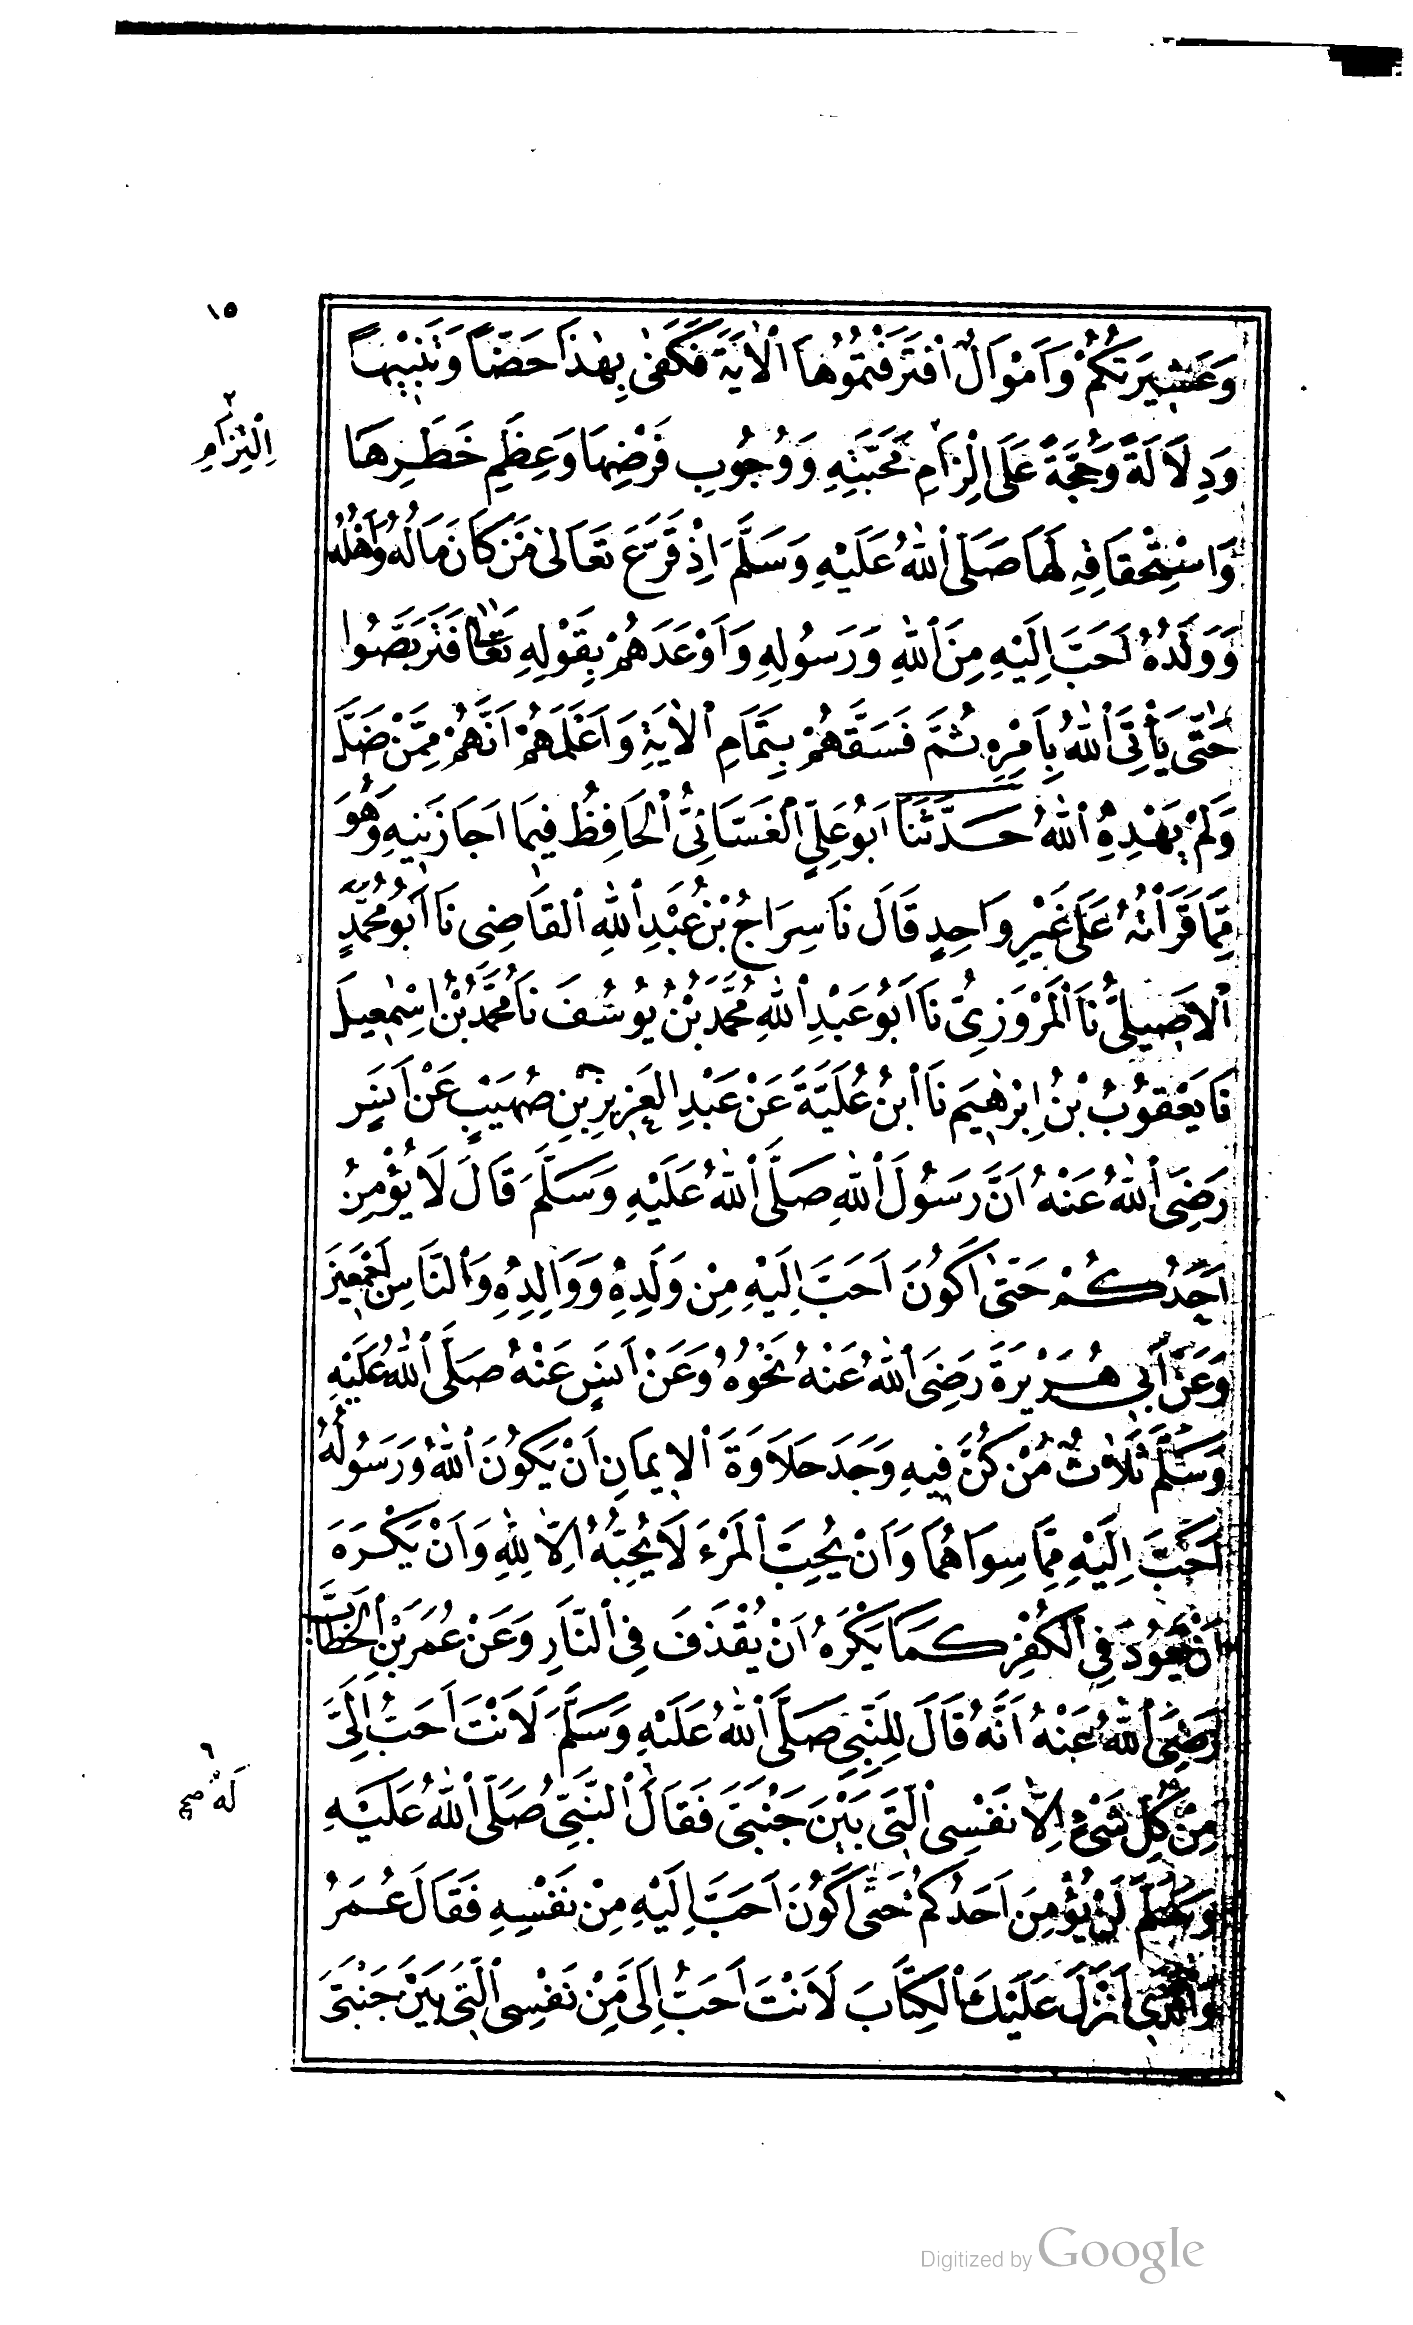 ١٥
وَعَشِيرَتُكُمْ وَاَمْوَالٌ اقْتَرَفْتُمُوهَا الْاٰيَةَ فَكَفٰى بِهٰذَا حَضًّا وَتَنْبِيهًا
وَدِلَالَةً وَحُجَّةً عَلَى اِلْزَامِ مَحَبَّتِهِ وَوُجُوبِ فَرْضِهَا وَعِظَمِ خَطَرِهَا
٢
اِلْتِزَامِ
وَاسْتِحْقَاقِهِ لَهَا صَلَّى اللّٰهُ عَلَيْهِ وَسَلَّمَ اِذْ قَرَّعَ تَعَالىٰ مَنْ كَانَ مَالُهُ وَاَهْلُهُ
وَوَلَدُهُ اَحَبَّ اِلَيْهِ مِنَ اللّٰهِ وَرَسُولِهِ وَاَوْعَدَهُمْ بِقَوْلِهِ تَعَالٰى فَتَرَبَّصُوا
حَتّٰى يَأْتِىَ اللّٰهُ بِاَمْرِهِ ثُمَّ فَسَّقَهُمْ بِتَمَامِ الْاٰيَةِ وَاَعْلَمَهُمْ اَنَّهُمْ مِمَّنْ ضَلَّ
وَلَمْ يَهْدِهِ اللّٰهُ حَدَّثَنَا اَبُو عَلِىٍّ الْغَسَّانِىُّ الْحَافِظُ فِيمَا اَجَازَنِيهِ وَهُوَ
مِمَّا قَرَأْتُهُ عَلَى غَيْرِ وَاحِدٍ قَالَ نَا سِرَاجُ بْنُ عَبْدِ اللّٰهِ الْقَاضِى نَا اَبُو مُحَمَّدٍ
الْاَصِيلِىُّ نَا الْمَرْوَزِىُّ نَا اَبُو عَبْدِ اللّٰهِ مُحَمَّدُ بْنُ يُوسُفَ نَا مُحَمَّدُ بْنُ اِسْمٰعِيلَ
نَا يَعْقُوبُ بْنُ اِبْرٰهِيمَ نَا ابْنُ عُلَيَّةَ عَنْ عَبْدِ الْعَزِيزِ بْنِ صُهَيْبٍ عَنْ اَنَسٍ
رَضِىَ اللّٰهُ عَنْهُ اَنَّ رَسُولَ اللّٰهِ صَلَّى اللّٰهُ عَلَيْهِ وَسَلَّمَ قَالَ لَا يُؤْمِنُ
اَحَدُكُمْ حَتّٰى اَكُونَ اَحَبَّ اِلَيْهِ مِنْ وَلَدِهِ وَوَالِدِهِ وَالنَّاسِ اَجْمَعِينَ
وَعَنْ اَبِى هُرَيْرَةَ رَضِىَ اللّٰهُ عَنْهُ نَحْوُهُ وَعَنْ اَنَسٍ عَنْهُ صَلَّى اللّٰهُ عَلَيْهِ
وَسَلَّمَ ثَلَاثٌ مَنْ كُنَّ فِيهِ وَجَدَ حَلَاوَةَ الْاِيمَانِ اَنْ يَكُونَ اللّٰهُ وَرَسُولُهُ
اَحَبَّ اِلَيْهِ مِمَّا سِوَاهُمَا وَاَنْ يُحِبَّ الْمَرْءَ لَا يُحِبُّهُ اِلَّا لِلّٰهِ وَاَنْ يَكْرَهَ
اَنْ يَعُودَ فِى الْكُفْرِ كَمَا يَكْرَهُ اَنْ يُقْذَفَ فِى النَّارِ وَعَنْ عُمَرَ بْنِ الْخَطَّابِ
رَضِىَ اللّٰهُ عَنْهُ اَنَّهُ قَالَ لِلنَّبِىِّ صَلَّى اللّٰهُ عَلَيْهِ وَسَلَّمَ لَاَنْتَ اَحَبُّ اِلَىَّ
مِنْ كُلِّ شَىْءٍ اِلَّا نَفْسِى الَّتِى بَيْنَ جَنْبَىَّ فَقَالَ النَّبِىُّ صَلَّى اللّٰهُ عَلَيْهِ
٦
لَهُ صح
وَسَلَّمَ لَنْ يُؤْمِنَ اَحَدُكُمْ حَتّٰى اَكُونَ اَحَبَّ اِلَيْهِ مِنْ نَفْسِهِ فَقَالَ عُمَرُ
وَالَّذِى اَنْزَلَ عَلَيْكَ الْكِتَابَ لَاَنْتَ اَحَبُّ اِلَىَّ مِنْ نَفْسِى الَّتِى بَيْنَ جَنْبَىَّ
Digitized by Google